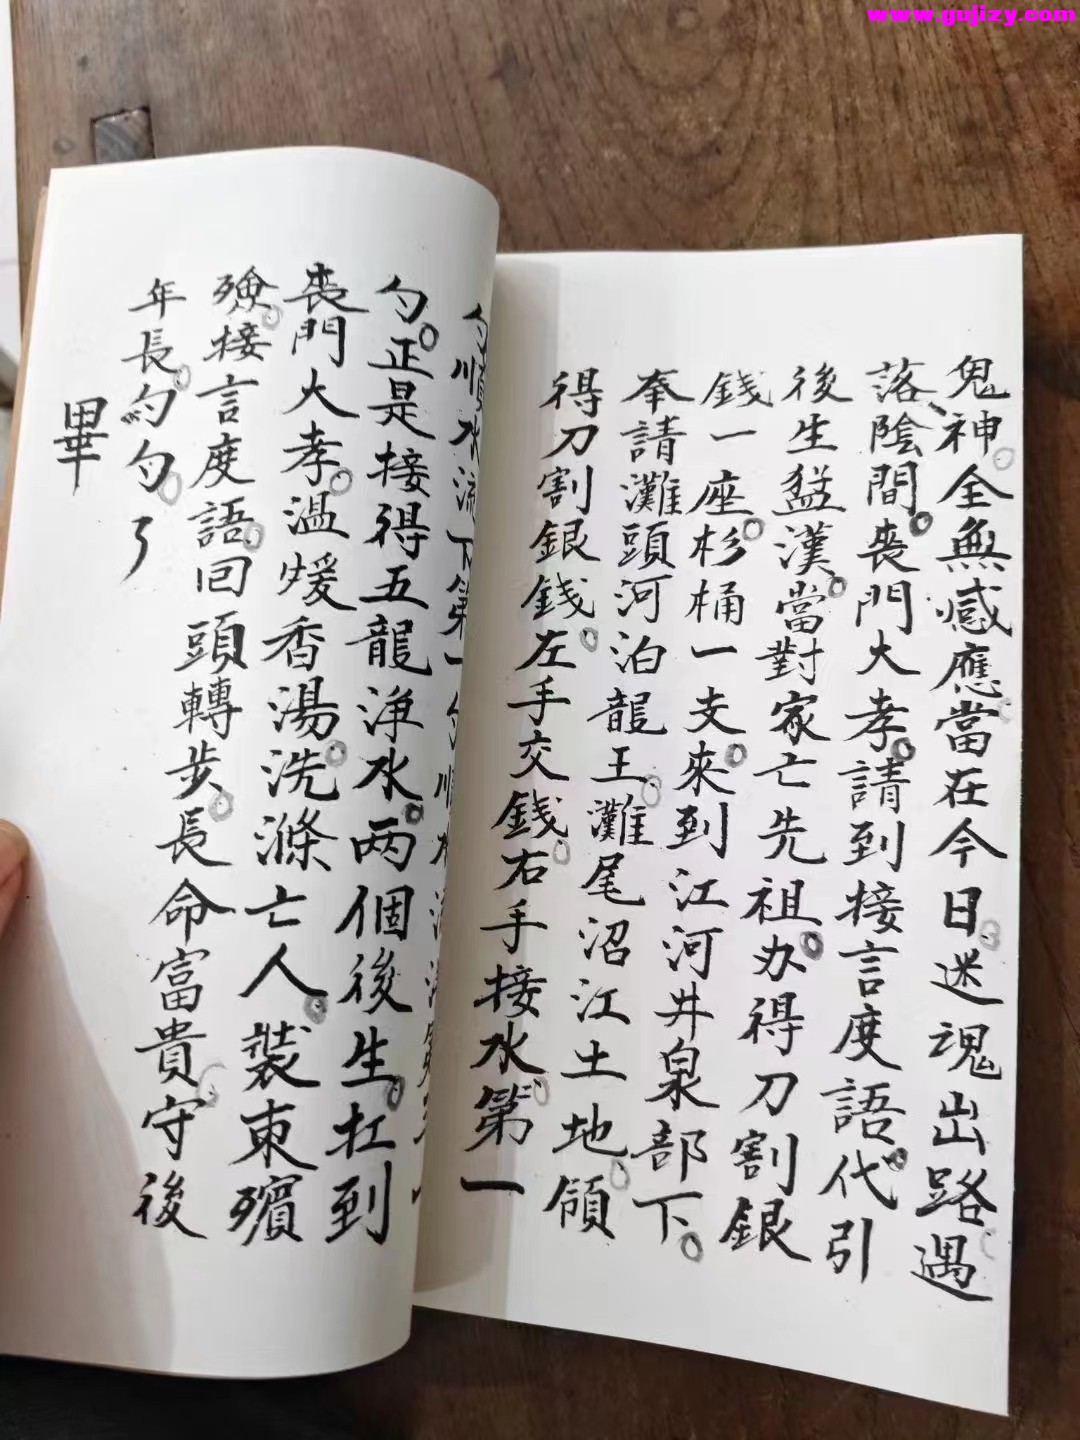 www.gujizy.com
鬼神。全無感應當在今日。迷魂出路遇
落陰間。喪門大孝。請到接言度語。代引
後生猛漢。當對家亡先祖。办得刀割銀
錢一座。杉桶一支。來到江河井泉部下。
奉請灘頭河泊龍王。灘尾沼江土地。領
得刀割銀錢。左手交錢。右手接水。第一
勺順水流下第一勺順水
勺。正是接得五龍淨水。两個後生。扛到
喪門大孝。温煖香湯。洗滌亡人。裝束殯
殮。接言度語。回頭轉步。長命富貴。守後
年長。勺勺。了
畢